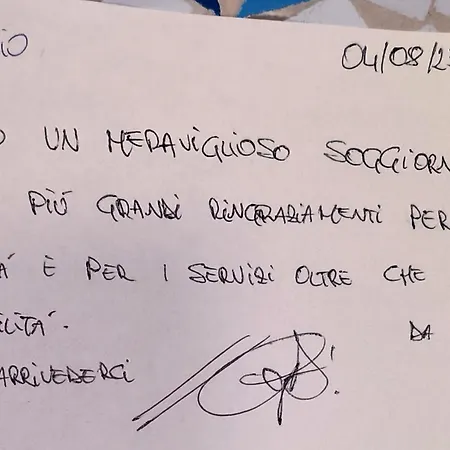 IO 04/08/23
O UN MERAVIGLIOSO SOGGIORN
PIÚ GRANDI RINGRAZIAMENTI PER
A' È PER I SERVIZI OLTRE CHE
ILITA'. DA
ARRIVEDERCI